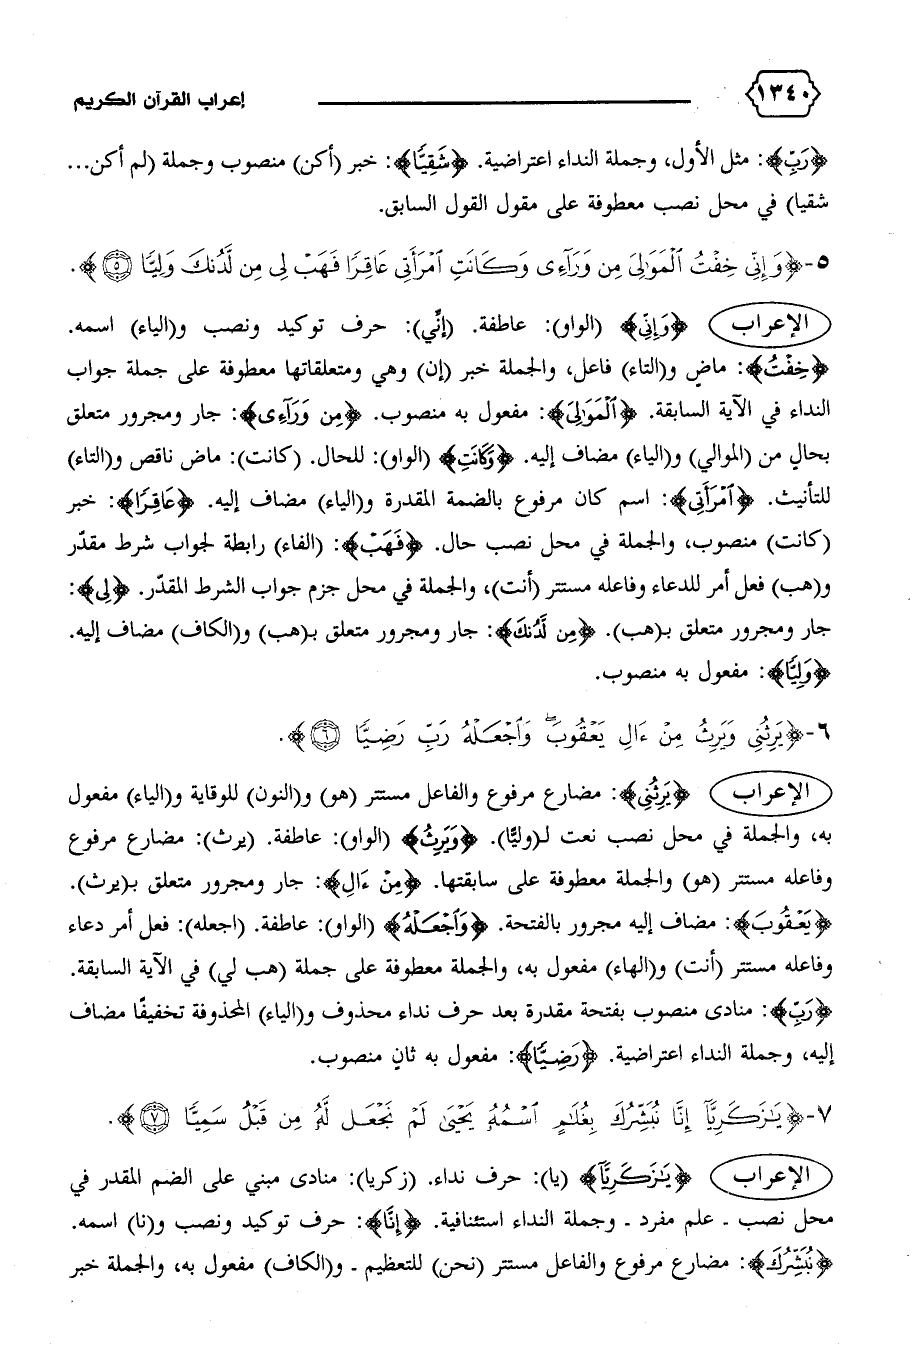 ١٣٤٠ إعراب القرآن الكريم
﴿رَبِّ﴾: مثل الأول، وجملة النداء اعتراضية. ﴿شَقِيًّا﴾: خبر (أكن) منصوب وجملة (لم أكن...
شقيا) في محل نصب معطوفة على مقول القول السابق.
٥-﴿وَإِنِّى خِفْتُ ٱلْمَوَٰلِىَ مِن وَرَآءِى وَكَانَتِ ٱمْرَأَتِى عَاقِرًا فَهَبْ لِى مِن لَّدُنكَ وَلِيًّا ٥﴾.
الإعراب ﴿وَإِنِّى﴾ (الواو): عاطفة. (إنِّي): حرف توكيد ونصب و(الياء) اسمه.
﴿خِفْتُ﴾: ماضٍ و(التاء) فاعل، والجملة خبر (إن) وهي ومتعلقاتها معطوفة على جملة جواب
النداء في الآية السابقة. ﴿ٱلْمَوَٰلِىَ﴾: مفعول به منصوب. ﴿مِن وَرَآءِى﴾: جار ومجرور متعلق
بحالٍ من (الموالي) و(الياء) مضاف إليه. ﴿وَكَانَتِ﴾ (الواو): للحال. (كانت): ماض ناقص و(التاء)
للتأنيث. ﴿ٱمْرَأَتِى﴾: اسم كان مرفوع بالضمة المقدرة و(الياء) مضاف إليه. ﴿عَاقِرًا﴾: خبر
(كانت) منصوب، والجملة في محل نصب حال. ﴿فَهَبْ﴾: (الفاء) رابطة لجواب شرط مقدّر
و(هب) فعل أمر للدعاء وفاعله مستتر (أنت)، والجملة في محل جزم جواب الشرط المقدّر. ﴿لِى﴾:
جار ومجرور متعلق بـ(هب). ﴿مِن لَّدُنكَ﴾: جار ومجرور متعلق بـ(هب) و(الكاف) مضاف إليه.
﴿وَلِيًّا﴾: مفعول به منصوب.
٦-﴿يَرِثُنِى وَيَرِثُ مِنْ ءَالِ يَعْقُوبَ ۖ وَٱجْعَلْهُ رَبِّ رَضِيًّا ٦﴾.
الإعراب ﴿يَرِثُنِى﴾: مضارع مرفوع والفاعل مستتر (هو) و(النون) للوقاية و(الياء) مفعول
به، والجملة في محل نصب نعت لـ(وليًّا). ﴿وَيَرِثُ﴾ (الواو): عاطفة. (يرث): مضارع مرفوع
وفاعله مستتر (هو) والجملة معطوفة على سابقتها. ﴿مِنْ ءَالِ﴾: جار ومجرور متعلق بـ(يرث).
﴿يَعْقُوبَ﴾: مضاف إليه مجرور بالفتحة. ﴿وَٱجْعَلْهُ﴾ (الواو): عاطفة. (اجعله): فعل أمر دعاء
وفاعله مستتر (أنت) و(الهاء) مفعول به، والجملة معطوفة على جملة (هب لي) في الآية السابقة.
﴿رَبِّ﴾: منادى منصوب بفتحة مقدرة بعد حرف نداء محذوف و(الياء) المحذوفة تخفيفًا مضاف
إليه، وجملة النداء اعتراضية. ﴿رَضِيًّا﴾: مفعول به ثانٍ منصوب.
٧-﴿يَٰزَكَرِيَّآ إِنَّا نُبَشِّرُكَ بِغُلَٰمٍ ٱسْمُهُۥ يَحْيَىٰ لَمْ نَجْعَل لَّهُۥ مِن قَبْلُ سَمِيًّا ٧﴾.
الإعراب ﴿يَٰزَكَرِيَّآ﴾ (يا): حرف نداء. (زكريا): منادى مبني على الضم المقدر في
محل نصب ـ علم مفرد ـ وجملة النداء استئنافية. ﴿إِنَّا﴾: حرف توكيد ونصب و(نا) اسمه.
﴿نُبَشِّرُكَ﴾: مضارع مرفوع والفاعل مستتر (نحن) للتعظيم ـ و(الكاف) مفعول به، والجملة خبر